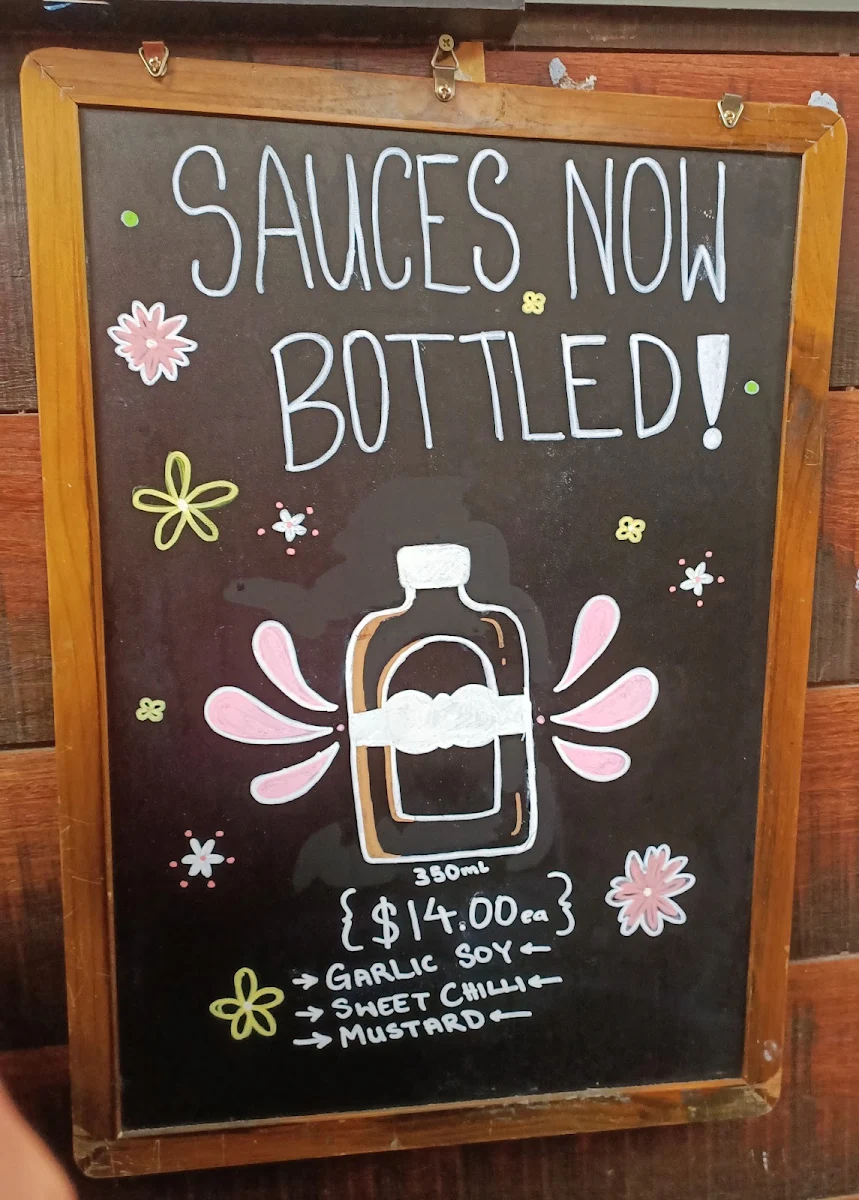 SAUCES NOW
BOTTLED!
350mL
{$14.00ea}
→GARLIC SOY←
→SWEET CHILLI←
→MUSTARD←